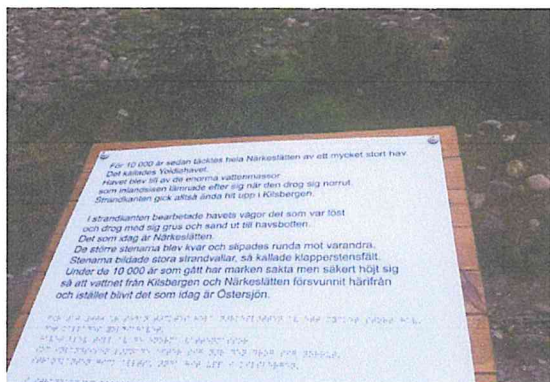 För 10 000 år sedan täcktes hela Närkeslätten av ett mycket stort hav.
Det kallades Yoldiahavet.
Havet blev till av de enorma vattenmassor
som inlandsisen lämnade efter sig när den drog sig norrut.
Strandkanten gick alltså ända hit upp i Kilsbergen.
I strandkanten bearbetade havets vågor det som var löst
och drog med sig grus och sand ut till havsbotten.
Det som idag är Närkeslätten.
De större stenarna blev kvar och slipades runda mot varandra.
Stenarna bildade stora strandvallar, så kallade klapperstensfält.
Under de 10 000 år som gått har marken sakta men säkert höjt sig
så att vattnet från Kilsbergen och Närkeslätten försvunnit härifrån
och istället blivit det som idag är Östersjön.